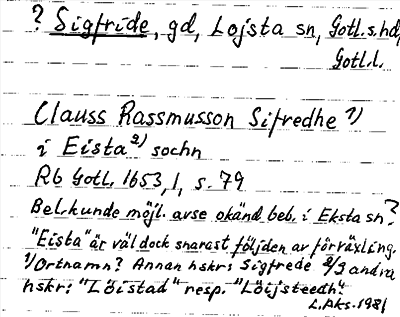 ? Sigfride, gd, Lojsta sn, Gotl. s. hd,
Gotl. l.
Clauss Rassmusson Sifredhe 1)
i Eista 2) sochn
Rb Gotl. 1653, 1, s. 79
Bel. kunde möjl. avse okänd beb. i Eksta sn?
"Eista" är väl dock snarast följden av förväxling.
1) Ortnamn? Annan hskr: Sigfrede 2) 3 andra
hskr: "Löistad" resp. "Löijsteedh".
L. Aks. 1981